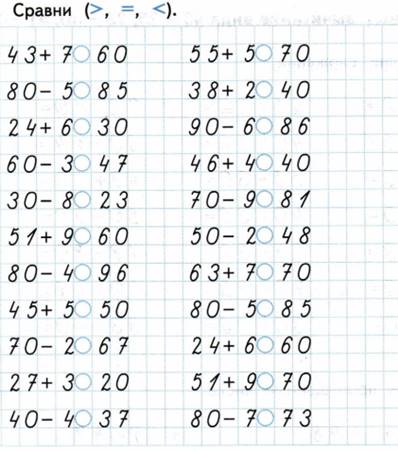 Сравни (>, =, <).
43+ 7○60 55+ 5○70
80- 5○85 38+ 2○40
24+ 6○30 90- 6○86
60- 3○47 46+ 4○40
30- 8○23 70- 9○81
51+ 9○60 50- 2○48
80- 4○96 63+ 7○70
45+ 5○50 80- 5○85
70- 2○67 24+ 6○60
27+ 3○20 51+ 9○70
40- 4○37 80- 7○73